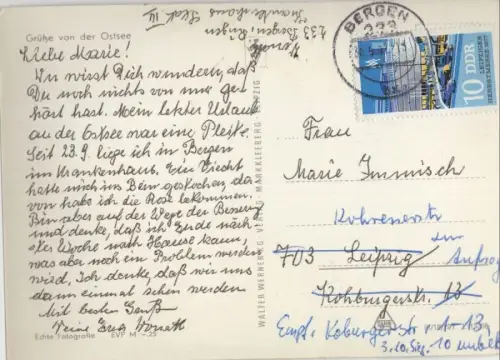 Grüße von der Ostsee
Liebe Marie!
Du wirst Dich wundern, daß
Du noch nichts von mir ge-
hört hast. Mein letzter Urlaub
an der Ostsee war eine Pleite.
Seit 23.9. liege ich in Bergen
im Krankenhaus. Ein Viech
hatte mich ins Bein gestochen, da-
von habe ich die Rose bekommen.
Bin aber auf dem Wege der Besserung
und denke, daß ich Ende näch-
ster Woche nach Hause kann,
was aber noch ein Problem werden
wird. Ich denke, daß wir uns
dann einmal sehen werden
Mit besten Gruß
Deine
Echte Fotografie EVP M -,25
WALTER WERNER KG VERLAG MARKKLEEBERG LEIPZIG
233 Bergen Rügen
Krankenhaus Stat. III
BERGEN
10 DDR
Frau
Marie Immisch
703 Leipzig
13
Empf. Koburgerstr 13